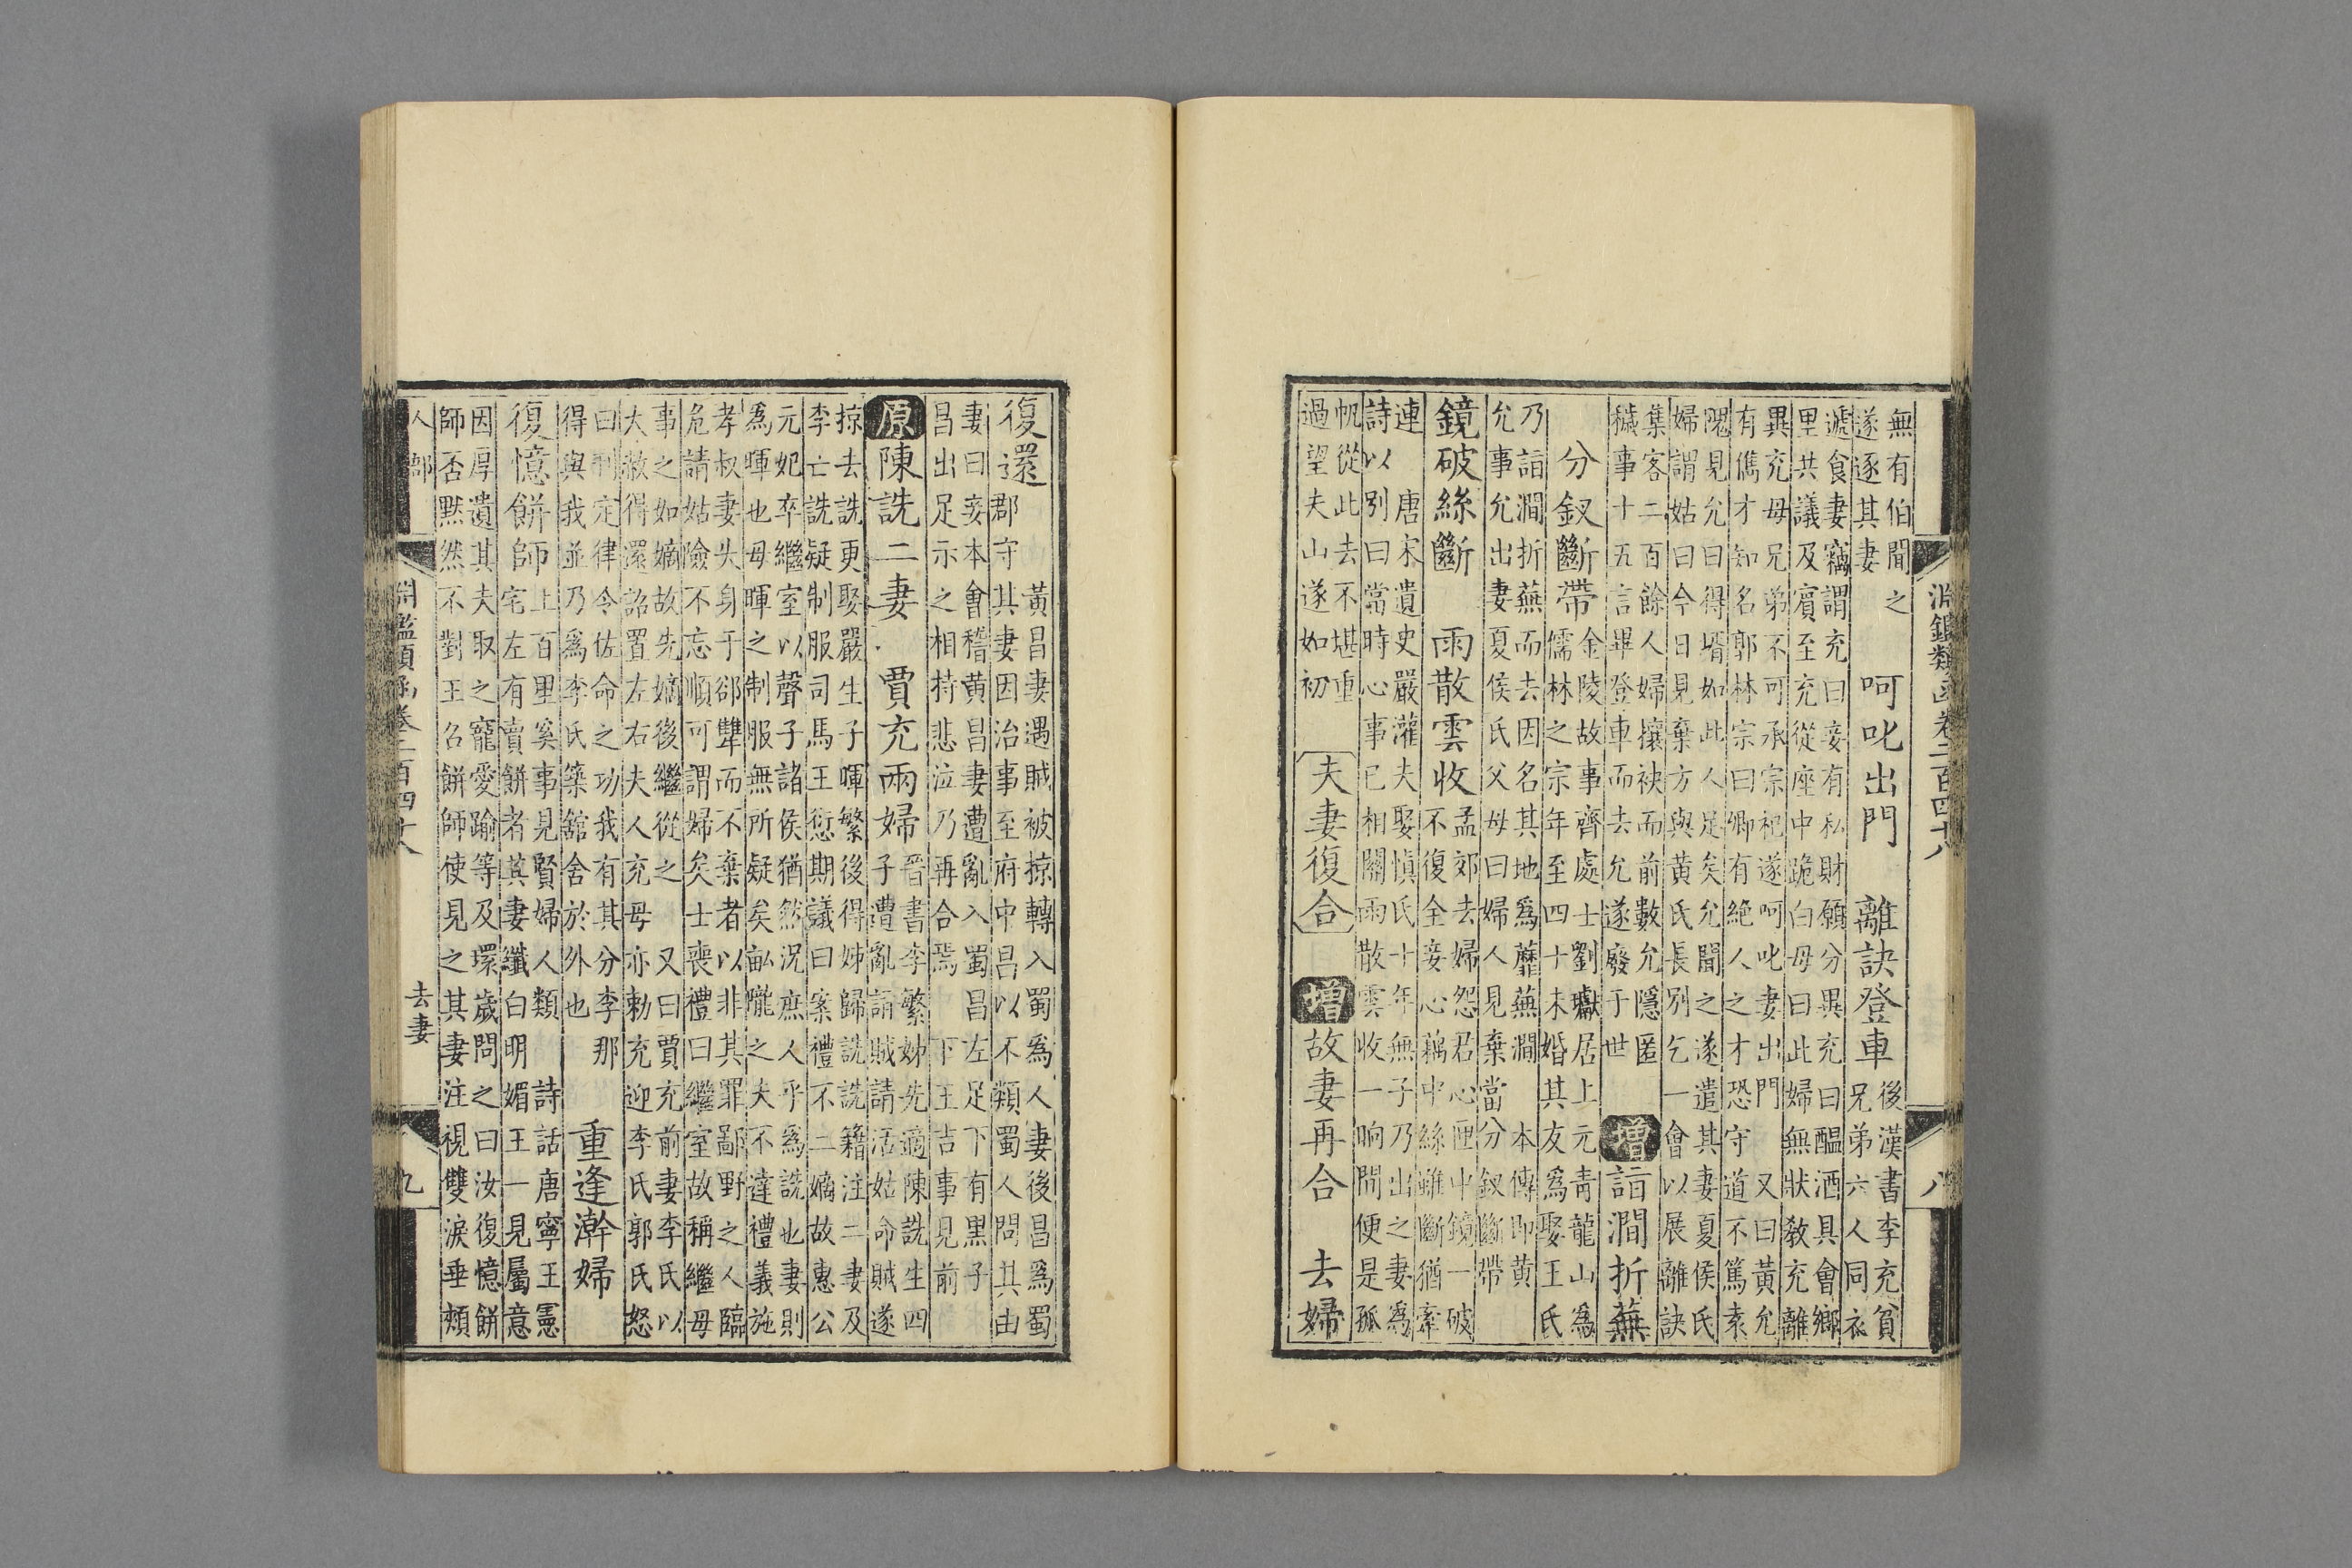 淵鑑類函卷二百四十八 八
無有伯聞之
遂逐其妻
呵叱出門 離訣登車
後漢書李充貧
兄弟六人同衣
遞食妻竊謂充曰妾有私財願分異充曰醞酒具會鄉
里共議及賓至充從座中跪白母曰此婦無狀教充離
異充母兄弟不可承宗祀遂呵叱妻出門 又曰黃允
有儁才知名郭林宗曰卿有絕人之才恐守道不篤袁
隗見允曰得壻如此人足矣允聞之遂遣其妻夏侯氏
婦謂姑曰今日見棄方與黃氏長別乞一會以展離訣
集客二百餘人婦攘袂而前數允隱匿
穢事十五言畢登車而去允遂廢于世
增 詣澗折蕪
分釵斷帶
金陵故事齊處士劉瓛居上元青龍山為
儒林之宗年至四十未婚其友為娶王氏
乃詣澗折蕪而去因名其地為蘼蕪澗 本傳即黃
允事允出妻夏侯氏父母曰婦人見棄當分釵斷帶
鏡破絲斷 雨散雲收
孟郊去婦怨君心匣中鏡一破
不復全妾心藕中絲雖斷猶牽
連 唐宋遺史嚴灌夫娶慎氏十年無子乃出之妻為
詩以別曰當時心事已相關雨散雲收一晌間便是孤
帆從此去不堪重
過望夫山遂如初
夫妻復合 增 故妻再合 去婦
復還
黃昌妻遇賊被掠轉入蜀為人妻後昌為蜀
郡守其妻因治事至府中昌以不類蜀人問其由
妻曰妾本會稽黃昌妻遭亂入蜀昌左足下有黑子
昌出足示之相持悲泣乃再合焉 下王吉事見前
原 陳詵二妻 賈充兩婦
晉書李繁姊先適陳詵生四
子遭亂詣賊請活姑命賊遂
掠去詵更娶嚴生子暉繁後得姊歸詵詵籍注二妻及
李亡詵疑制服司馬王愆期議曰案禮不二嫡故惠公
元妃卒繼室以聲子諸侯猶然況庶人乎為詵也妻則
為暉也母暉之制服無所疑矣畝隴之夫不達禮義施
孝叔妻失身于郤犨而不棄者以非其罪鄙野之人臨
危請姑險不忘順可謂婦矣士喪禮曰繼室故稱繼母
事之如嫡故先嫡後繼從之 又曰賈充前妻李氏以
大赦得還詔置左右夫人充母亦勅充迎李氏郭氏怒
曰刊定律令佐命之功我有其分李那
得與我並乃為李氏築舘舍於外也
重逢澣婦
復憶餅師
上百里奚事見賢婦人類 詩話唐寧王憲
宅左有賣餅者其妻纖白明媚王一見屬意
因厚遺其夫取之寵愛踰等及環歲問之曰汝復憶餅
師否默然不對王召餅師使見之其妻注視雙淚垂頰
人部 淵鑑類函卷二百四十八 去妻 九